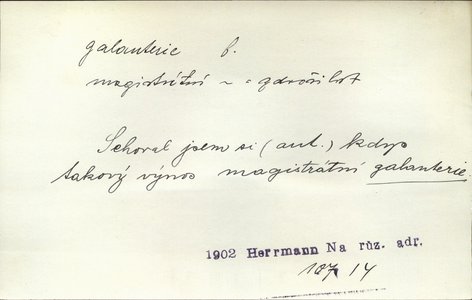 galanterie f.
magistrátní ~ = zdvořilost
Schoval jsem si (aut.) kdys
takový výnos magistrátní galanterie
1902 Herrmann Na růz. adr.
107, 14